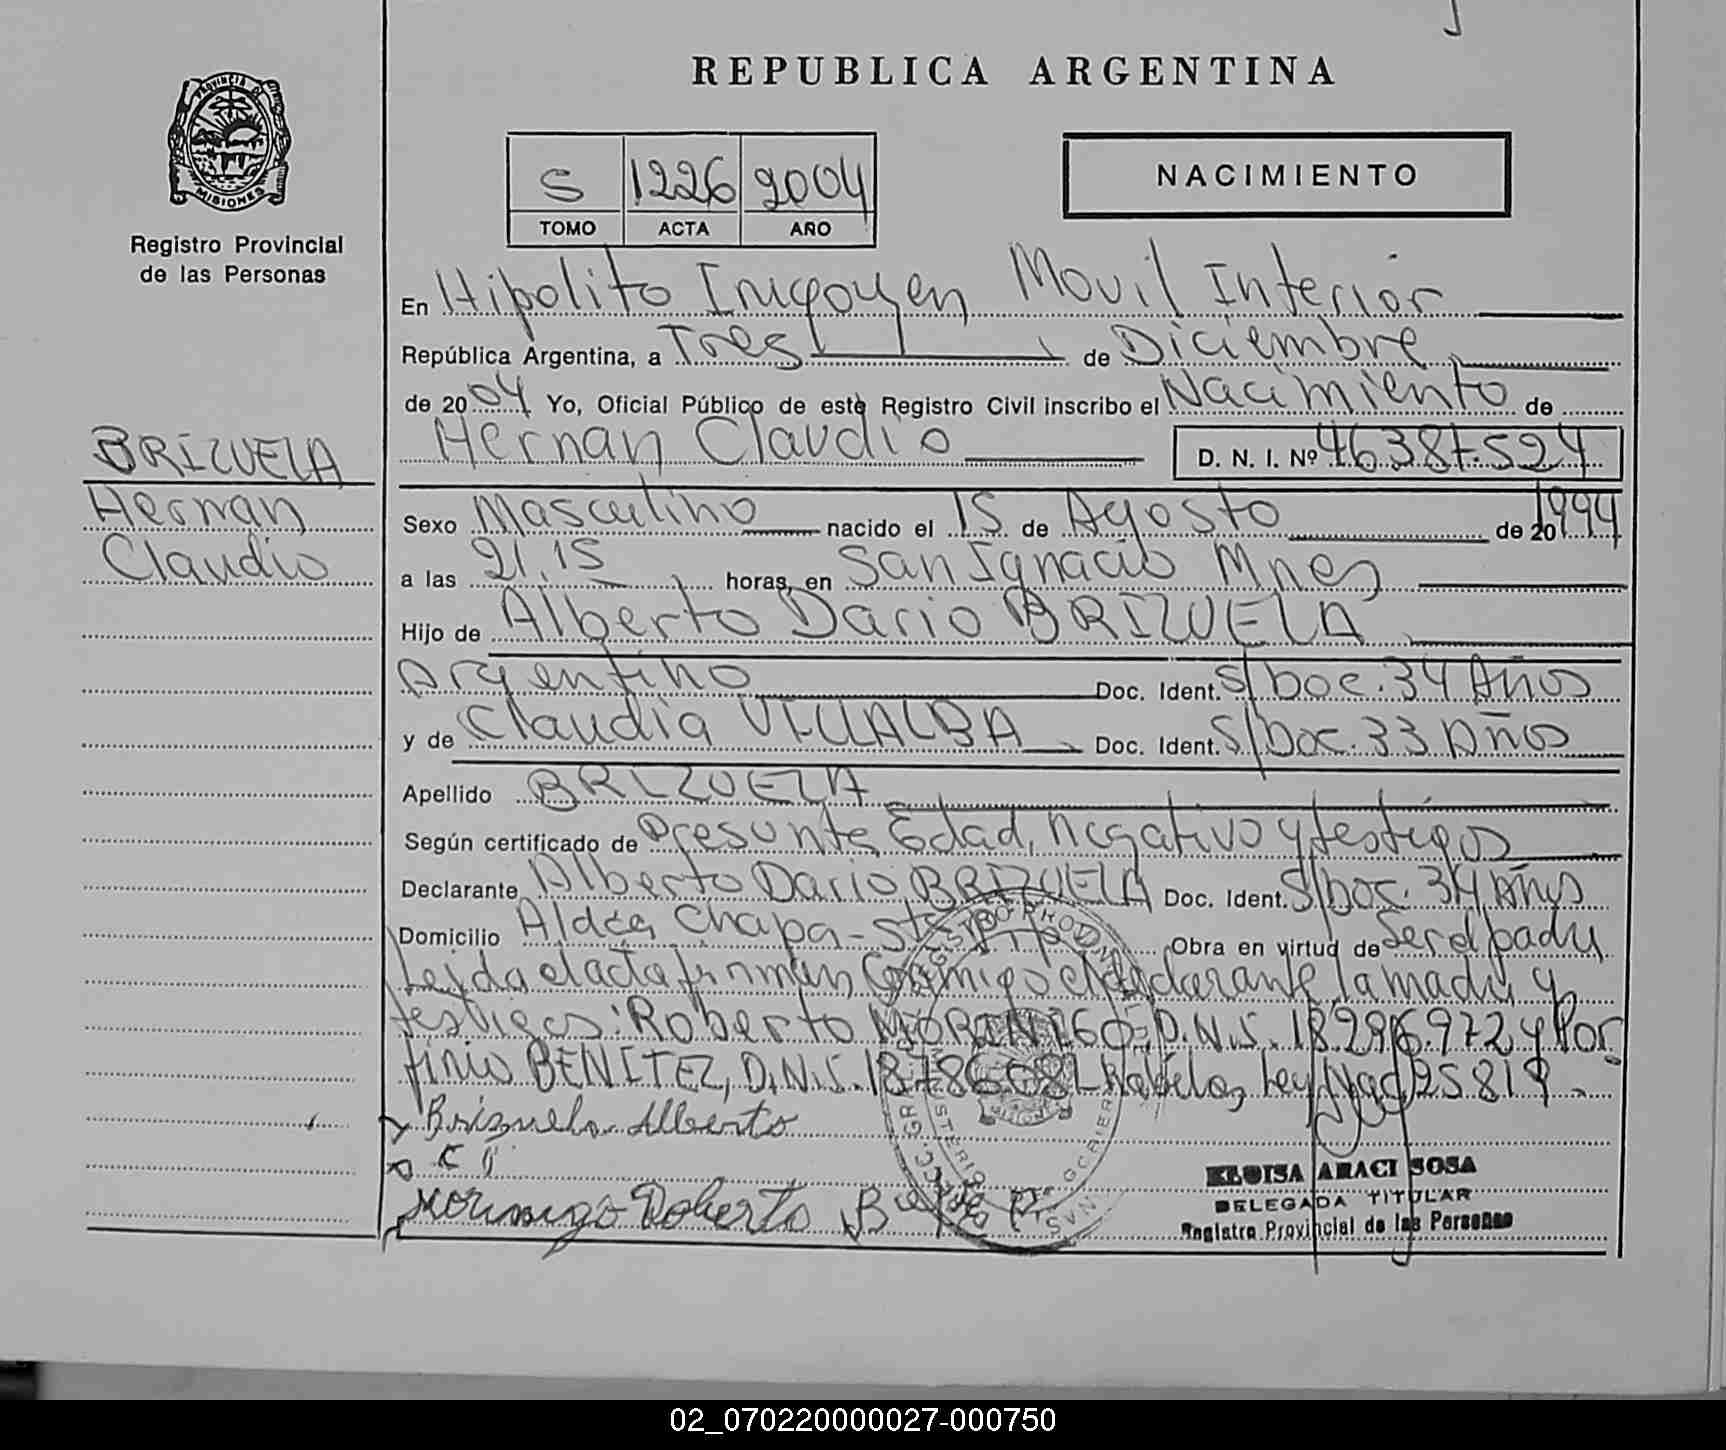 REPUBLICA ARGENTINA
PROVINCIA DE
MISIONES
Registro Provincial
de las Personas
S 1226 2004
TOMO ACTA AÑO
NACIMIENTO
En Hipolito Irigoyen Movil Interior
República Argentina, a Tres de Diciembre
de 2004 Yo, Oficial Público de este Registro Civil inscribo el Nacimiento de
Hernan Claudio D. N. I. Nº 46387.524
BRIZUELA
Hernan
Claudio
Sexo Masculino nacido el 15 de Agosto de 20 1994
a las 21.15 horas, en San Ignacio Mnes
Hijo de Alberto Dario BRIZUELA
Argentino Doc. Ident. S/Doc. 34 Años
y de Claudia VILLALBA Doc. Ident. S/Doc. 33 Años
Apellido BRIZUELA
Según certificado de Presunta Edad, negativo y testigos
Declarante Alberto Dario BRIZUELA Doc. Ident. S/Doc. 34 Años
Domicilio Aldea Chapa - Obra en virtud de Ser el padre
Leida el acta firman Conmigo el declarante, la madre y
testigos: Roberto MORINIGO, D.N.I. 18.296.972 y Por
firio BENITEZ, D.N.I. 18786081 Ley 25819
Brizuela Alberto
Morinigo Roberto
ELOISA ARACI SOSA
DELEGADA TITULAR
Registro Provincial de las Personas
02_070220000027-000750